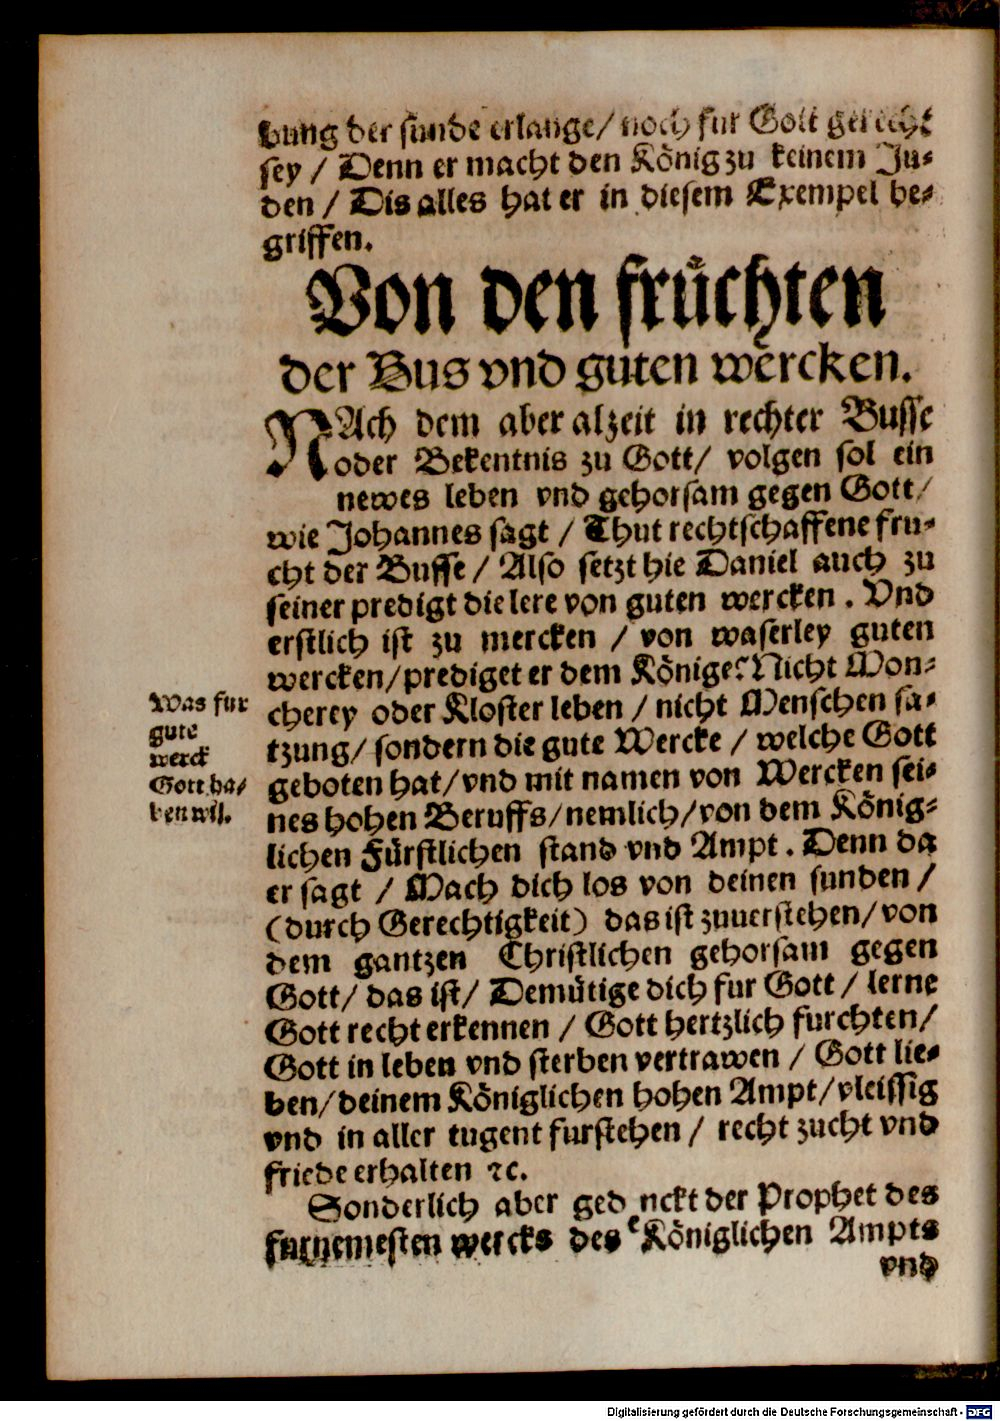 bung der sunde erlange/ noch fur Gott gerecht
sey / Denn er macht den König zu keinem Ju-
den / Dis alles hat er in diesem Exempel be-
griffen.
Von den früchten
der Bus vnd guten wercken.
NAch dem aber alzeit in rechter Busse
oder Bekentnis zu Gott/ volgen sol ein
newes leben vnd gehorsam gegen Gott/
wie Johannes sagt / Thut rechtschaffene fru-
cht der Busse / Also setzt hie Daniel auch zu
seiner predigt die lere von guten wercken . Vnd
erstlich ist zu mercken / von waserley guten
wercken/prediget er dem Könige? Nicht Mön-
cherey oder Kloster leben / nicht Menschen sa-
tzung/ sondern die gute Wercke / welche Gott
geboten hat/vnd mit namen von Wercken sei-
nes hohen Beruffs/nemlich/von dem König-
lichen Fürstlichen stand vnd Ampt . Denn da
er sagt / Mach dich los von deinen sunden /
(durch Gerechtigkeit) das ist zuuerstehen/von
dem gantzen Christlichen gehorsam gegen
Gott/ das ist/ Demütige dich fur Gott / lerne
Gott recht erkennen / Gott hertzlich furchten/
Gott in leben vnd sterben vertrawen / Gott lie-
ben/deinem Königlichen hohen Ampt/vleissig
vnd in aller tugent furstehen / recht zucht vnd
friede erhalten ꝛc.
Sonderlich aber gedenckt der Prophet des
furnemesten wercks des Königlichen Ampts
vnd
Was fur
gute
werck
Gott ha-
ben wil.
Digitalisierung gefördert durch die Deutsche Forschungsgemeinschaft - DFG